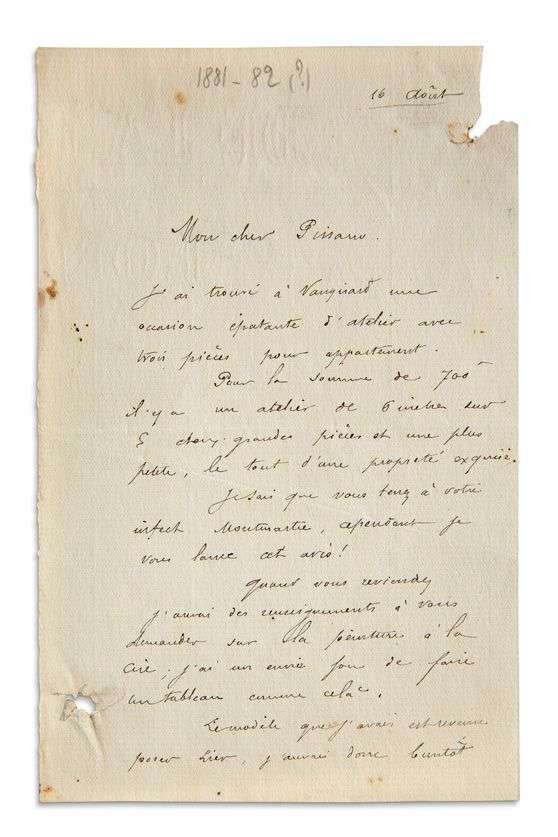 1881-82 (?)
16 Août
Mon cher Pissaro.
J'ai trouvé à Vaugirard une
occasion épatante d'atelier avec
trois pièces pour appartement.
Pour la somme de 700
il y a un atelier de 6 mètres sur
5 deux grandes pièces et une plus
petite, le tout d'une propreté exquise.
Je sais que vous tenez à votre
infect Montmartre, cependant je
vous lance cet avis!
Quand vous reviendrez
j'aurai des renseignements à vous
demander sur la peinture à la
cire, j'ai un envie fou de faire
un tableau comme cela.
Le modèle que j'avais est revenu
poser hier, j'aurai donc bientôt